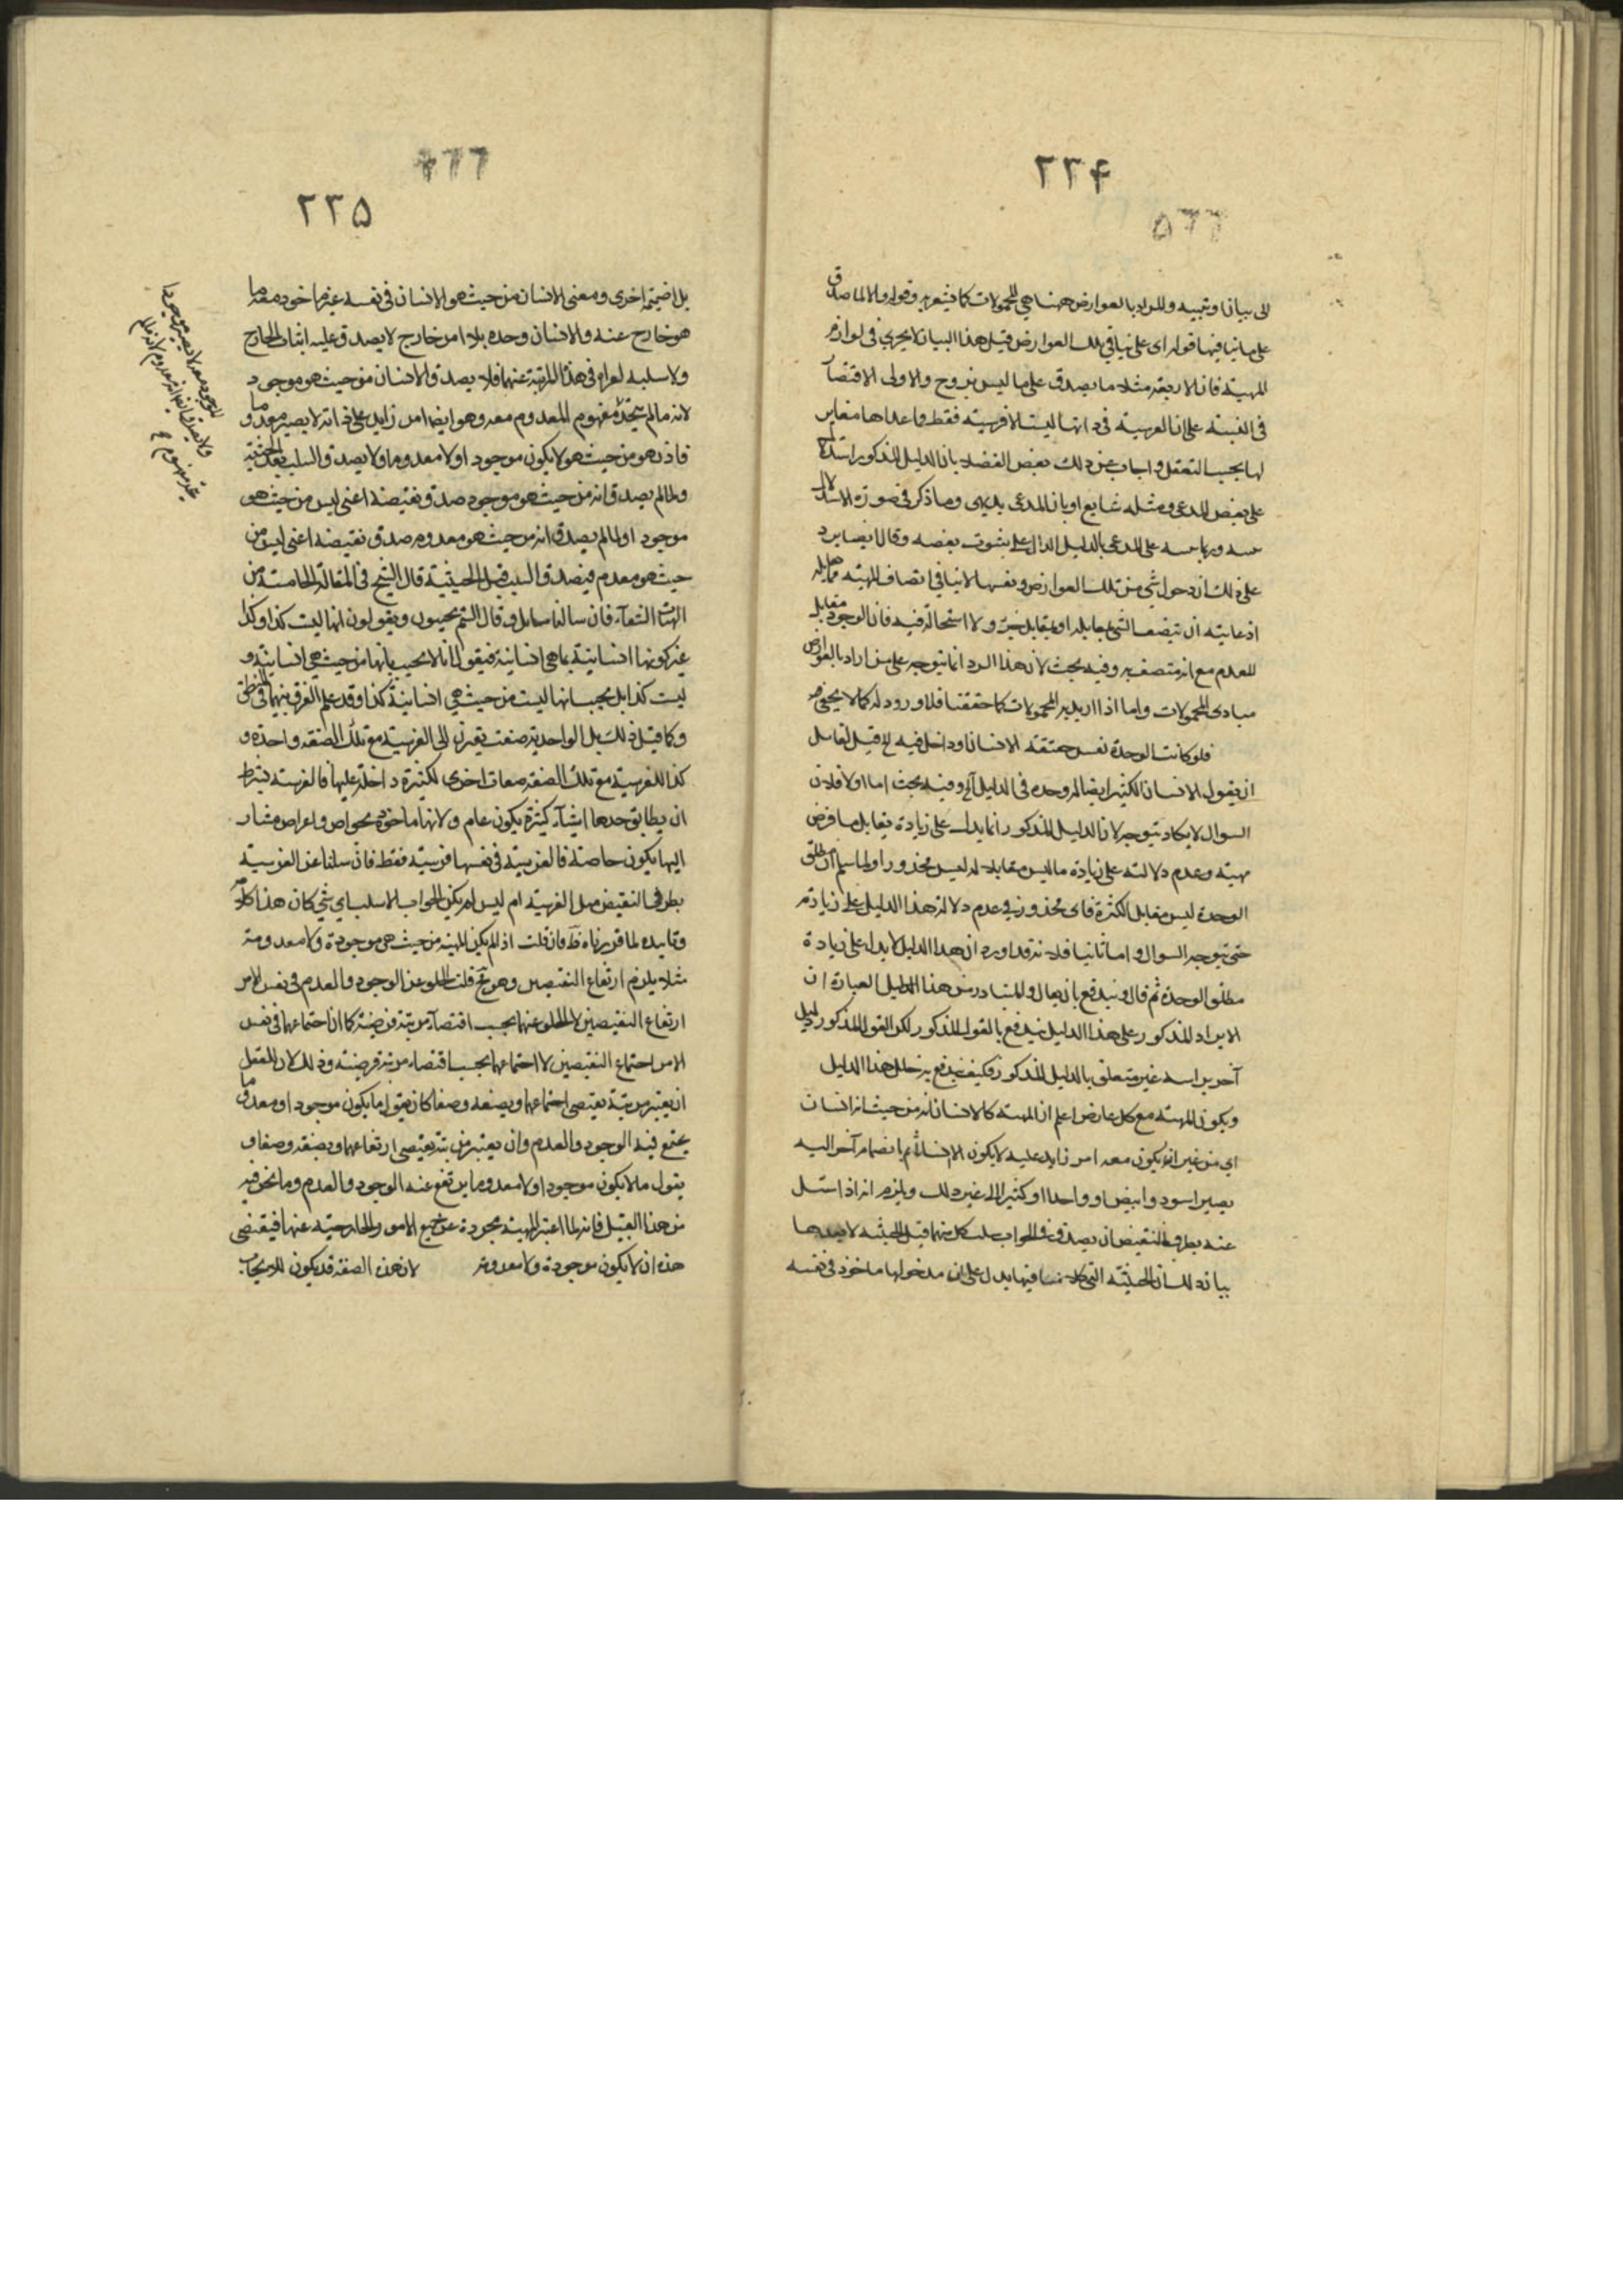 ٢٢۴
٥٦٦
الى بيان او تنبيه والمراد بالعوارض ههنا هي المحمولات كما يشعر به قوله والا لما صدق
على ما ينافيها قوله اى على ينافي تلك العوارض قيل هذا البيان لا يجري في لوازم
المهية فان الاربعة مثلا ما يصدق على ما ليس بزوج والاولى الاقتصار
في التنبيه على ان الفرسية في ذاتها ليست الا فرسية فقط وما عداها مغاير
لها بحسب التعقل واجاب عن ذلك بعض الفضلاء بان الدليل المذكور استدلال
على بعض المدعى ومثله شايع او بان المدعى بديهى وما ذكر في صورة الاستدلال
تنبيه وربما ينبه على المدعى بالدليل الدال على ثبوت بعضه وقال ايضا يرد
على ذلك ان دخول شي من تلك العوارض ونفسها لا ينافي اتصاف المهية بمقابله
اذ غايته ان يتصف الشي بمقابله او بمقابل جزئه ولا استحالة فيه فان الوجود مقابل
للعدم مع انه متصف به وفيه بحث لان هذا الرد انما يتوجه على من اراد بالعوارض
مبادى المحمولات واما اذا اريد به المحمولات كما حققنا فلا ورود له كما لا يخفى
فلو كانت الوحدة نفس حقيقة الانسان او داخل فيه الخ قيل لقايل
ان يقول الانسان الكثير ايضا له وحدة في الدليل الخ وفيه بحث اما اولا فلان
السوال لا يكاد يتوجه لان الدليل المذكور انما يدل على زيادة يقابل ما فرض
مهية وعدم دلالته على زيادة ما ليس مقابلا له ليس محذورا ولما سلم ان مطلق
الوحدة ليس مقابل الكثرة فاى محذور في عدم دلالة هذا الدليل على زيادته
حتى يتوجه السوال واما ثانيا فلانه قد اورد ان هذا الدليل لا يدل على زيادة
مطلق الوحدة ثم قال ويندفع بان يقال والمتبادر من هذا الدليل العبارة ان
الايراد المذكور على هذا الدليل يندفع بالقول المذكور لكن القول المذكور دليل
آخر براسه غير متعلق بالدليل المذكور فكيف يندفع به خلل هذا الدليل
ويكون المهية مع كل عارض اعلم ان المهية كالانسان انه من حيث انه انسان
اى من غير ان يكون معه امر زايد عليه لا يكون الا انسانا ثم بانضمام آخر اليه
يصير اسود وابيض او واحدا او كثيرا الى غير ذلك ويلزم انه اذا سئل
عنه بطرفي النقيض ان يصدق في الجواب سلب كل منهما قبل الحيثية لا بعدها
بيانه ذلك ان الحيثية التي كلامنا فيها يدل على ان مدخولها ماخوذ في نفسه
٦٦٦
٢٢٥
بلا ضميمة اخرى ومعنى الانسان من حيث هو الانسان في نفسه غير ماخوذ معه ما
هو خارج عنه والانسان وحده بلا امر خارج لا يصدق عليه اثبات الخارج
ولا سلبه لعرايه في هذه المرتبة عنهما فلا يصدق الانسان من حيث هو موجود
لانه ما لم يتحد مفهوم المعدوم معه وهو ايضا امر زايد على ذاته لا يصير معدوما و
فاذن هو من حيث هو لا يكون موجودا ولا معدوما ولا يصدق السلب بعد الحيثية
ولما لم يصدق انه من حيث هو موجود صدق نقيضه اعني ليس من حيث هو
موجودا ولما لم يصدق انه من حيث هو معدوم صدق نقيضه اعني ليس من
حيث هو معدوم فيصدق السلب قبل الحيثية قال الشيخ في المقالة الخامسة من
الهيات الشفاء فان سالنا سايل وقال الستم تجيبون وتقولون انها ليست كذا وكذا
غير كونها انسانية بما هي انسانية فيقول انا لا نجيب بانها من حيث هي انسانية و
ليست كذا بل نجيب انها ليست من حيث هي انسانية كذا وقد علم الفرق بينهما في المنطق
وكما قيل ذلك بل الواحدية صفت يقترن الى الفرسية مع تلك الصفة واحدة و
كذا للفرسية مع تلك الصفة صفات اخرى لكثيرة داخلة عليها فالفرسية بشرط
ان يطابق حدها اشياء كثيرة يكون عام ولانها ماخوذ بخواص واعراض مشار
اليها يكون خاصة فالفرسية في نفسها فرسية فقط فان سئلنا عن الفرسية
بطرفي النقيض هل الفرسية ام ليس لم يكن الجواب الا سلب اى شي كان هذا كلامه
وتاييده لما قررناه ظ فان قلت اذ لم يكن المهية من حيث هي موجودة ولا معدومة
مثلا يلزم ارتفاع النقيضين وهو مح قلت الخلو عن الوجود والعدم في نفس الامر
ارتفاع النقيضين لا الخلو عنهما بحسب اقتضاء مرتبة فرضية كما ان اجتماعهما في نفس
الامر اجتماع النقيضين لا اجتماعهما بحسب اقتضاء مرتبة فرضية وذلك لان للعقل
ان يعتبر مرتبة يقتضى اجتماعهما ويصفه وصفا كان يقول ما يكون موجودا ومعدوما
يجتمع فيه الوجود والعدم وان يعتبر مرتبة يقتضى ارتفاعهما ويصفه وصفا و
يقول ما لا يكون موجودا ولا معدوما يرتفع عنه الوجود والعدم وما نحن فيه
من هذا القبيل فانه لما اعتبر المهية مجردة عن جميع الامور الخارجية عنها فيقتضى
هذه ان لا يكون موجودة ولا معدومة لان هذه الصفة قد يكون للايجاب
الموجود معه لا يصير موجودا
ولا يصدق انه معدوم لانه ما لم
يتحد مفهوم